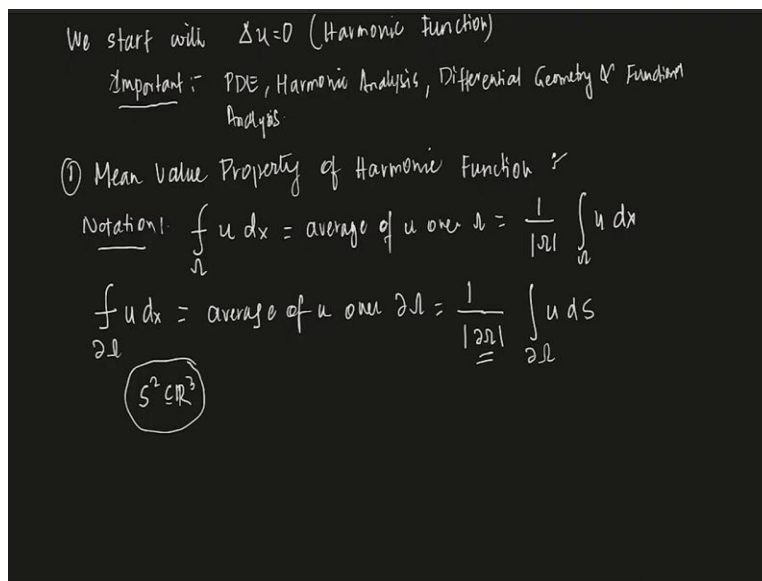 We start with Δu=0 (Harmonic Function)
Important:- PDE, Harmonic Analysis, Differential Geometry & Functional
Analysis.
① Mean Value Property of Harmonic Function :-
Notation: ⨍_Ω u dx = average of u over Ω = 1/|Ω| ∫_Ω u dx
⨍_∂Ω u dx = average of u over ∂Ω = 1/|∂Ω| ∫_∂Ω u dS
S² ⊆ ℝ³